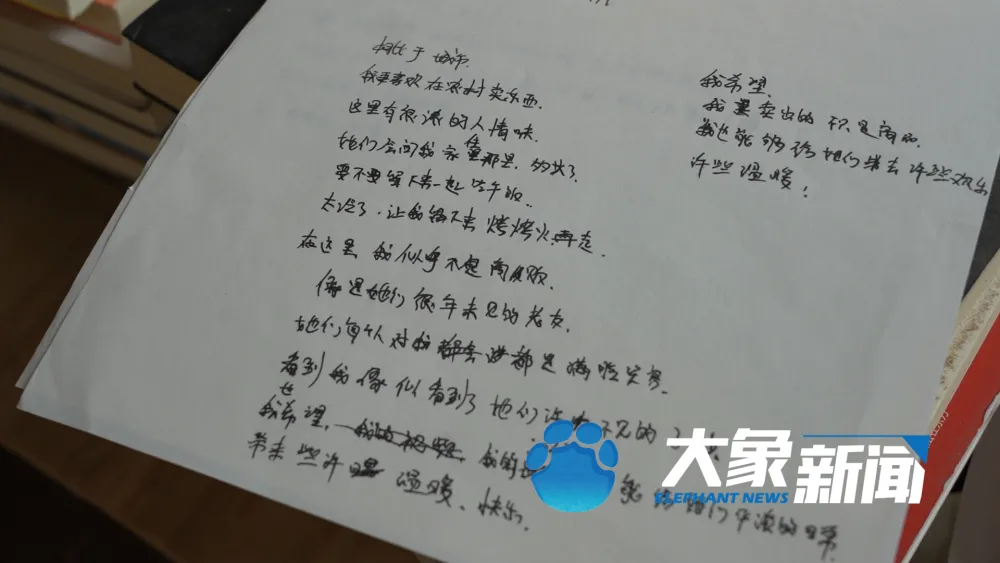 相比于城市.
我更喜欢在农村卖东西.
这里有很浓的人情味.
她们会问我家是那里.多大了.
要不要留下来一起吃午饭..
太冷了.让我留下来烤烤火再走.
在这里我似乎不是商贩.
像是她们很年未见的老友.
她们每个人对我都是满脸笑容.
看到我像似看到了她们许久不见的
也
我希望. 我的 能给她们平淡的日常
带来些许温暖、快乐.
我希望.
我卖出的不只是商品.
也能够给她们带去许些欢乐
许些温暖!
大象新闻
ELEPHANT NEWS